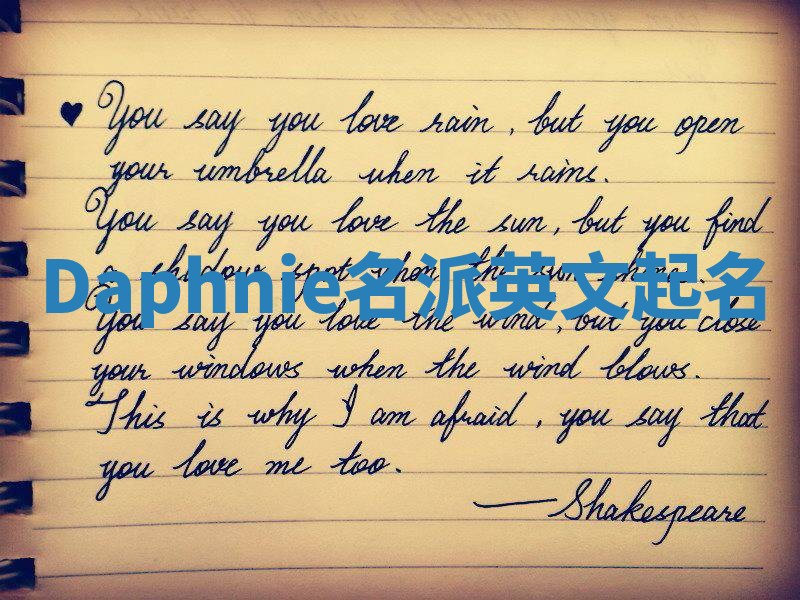 ♥ You say you love rain, but you open
your umbrella when it rains.
You say you love the sun, but you find
a shadow spot when the sun shines.
Daphnie名派英文起名
You say you love the wind, but you close
your windows when the wind blows.
This is why I am afraid, you say that
you love me too.
—Shakespeare